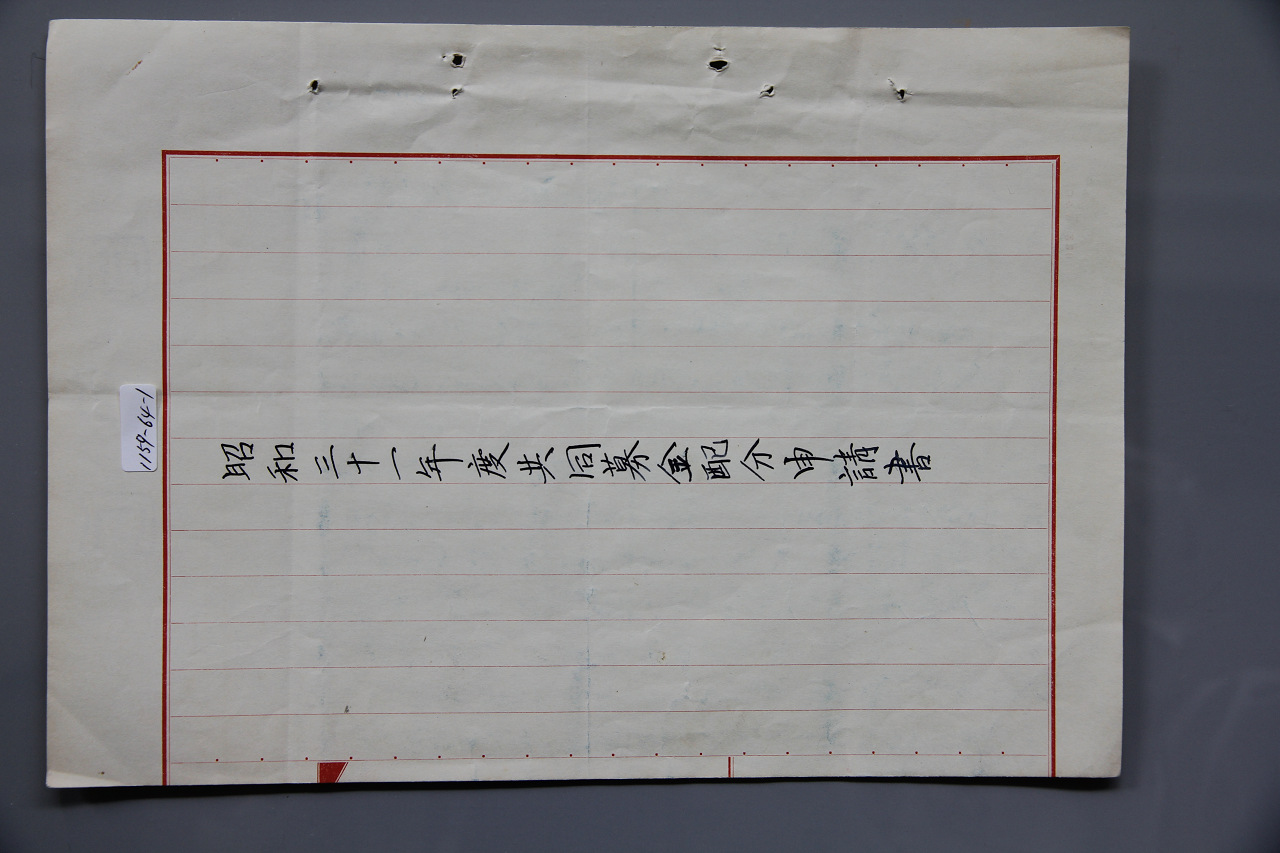 昭和三十一年度共同募金配分申請書
1159-64-1